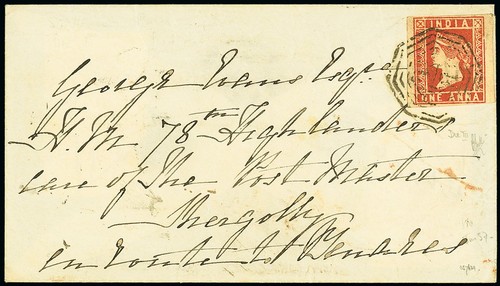 INDIA
ONE ANNA
George Evans Esqre
H.M 78th Highlanders
care of The Post Master
en route to